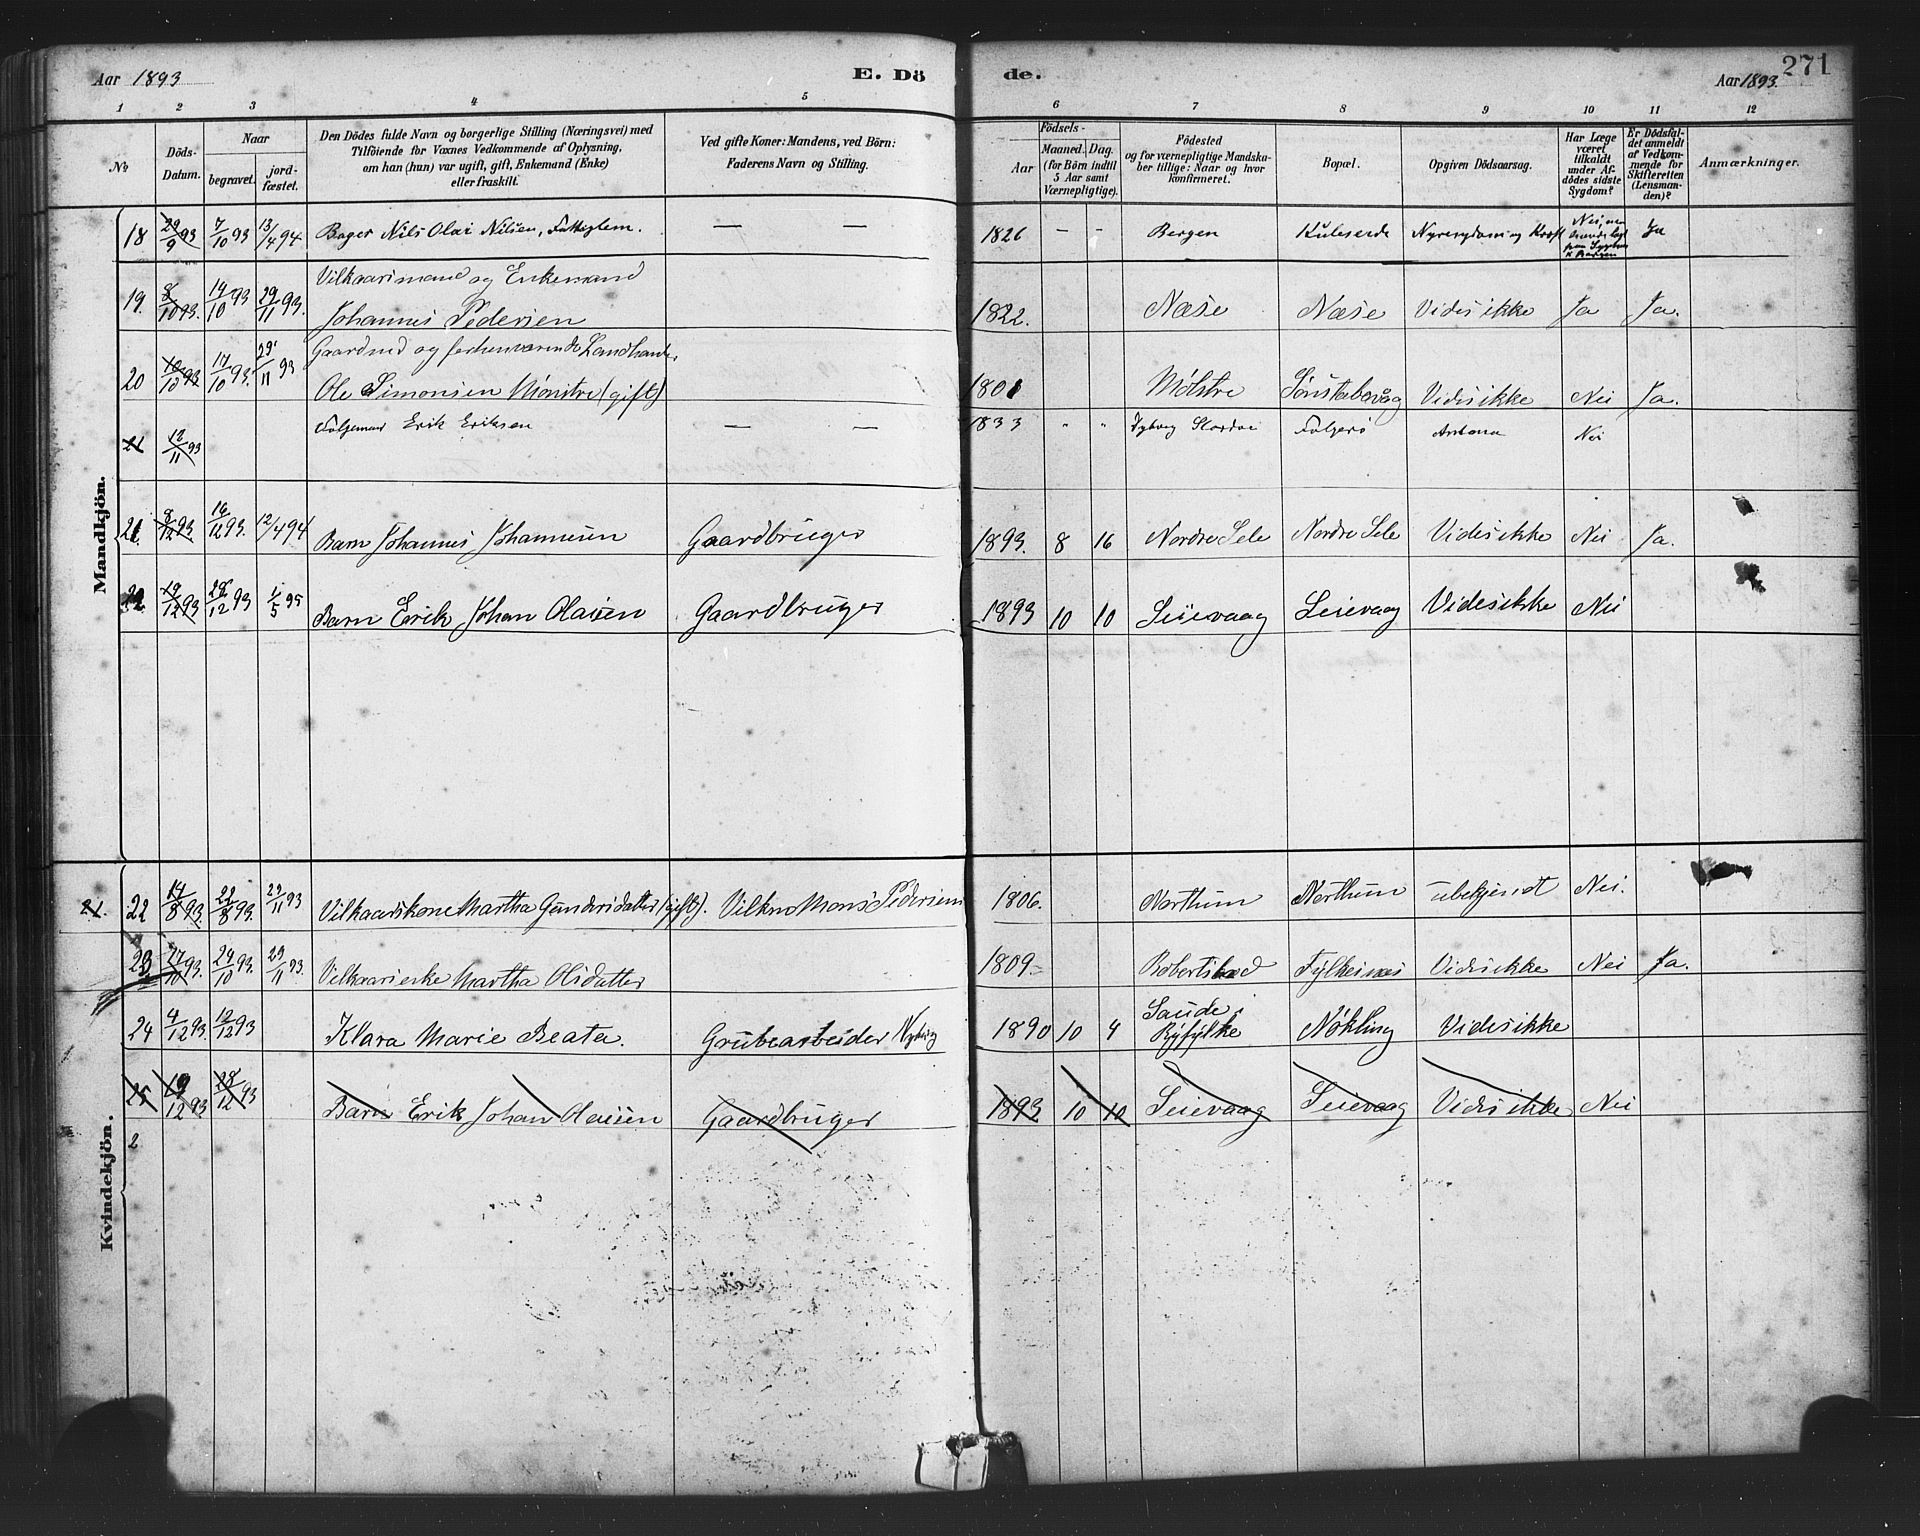 Aar 1893
E. Dö
de.
Aar 1893.
271
1 2 3 4 5 6 7 8 9 10 11 12
No
Döds-
Datum.
Naar
begravet.
jord-
fæstet.
Den Dödes fulde Navn og borgerlige Stilling (Næringsvei) med
Tilföiende for Voxnes Vedkommende af Oplysning,
om han (hun) var ugift, gift, Enkemand (Enke)
eller fraskilt.
Ved gifte Koner: Mandens, ved Börn:
Faderens Navn og Stilling.
Födsels-
Aar
Maaned. Dag.
(for Börn indtil
5 Aar samt
Værnepligtige).
Födested
og for værnepligtige Mandska-
ber tillige: Naar og hvor
konfirmeret.
Bopæl.
Opgiven Dödsaarsag.
Har Læge
været
tilkaldt
under Af-
dödes sidste
Sygdom?
Er Dödsfal-
det anmeldt
af Vedkom-
mende for
Skifteretten
(Lensman-
den)?
Anmærkninger.
Mandkjön.
18 29/9 93 7/10 93 13/4 94 Bager Nils Olai Nilsen, Fattiglem. — — 1826 - - Bergen Kuleseide Nyresygdom og Kræft Ja
Vilkaarsmand og Enkemand
19. 8/10 93. 14/10 93 29/11 93. Johannes Pedersen 1822. Næse Næse Vides ikke Ja Ja.
Gaardmd og forhenværende Landhandler
20 10/10 93 17/10 93. 29/11 93 Ole Simonsen Mønstre (gift) 1801 Mølstre Vides ikke Nei Ja.
21 12/11 93 Erik Eriksen — — 1833 " " Nei
21. 8/12 93. 16/12 93. 12/4 94 Barn Johannes Johannesen Gaardbruger 1893. 8 16 Nordre Sele Nordre Sele Vides ikke Nei Ja.
22. 19/12 93 28/12 93 1/5 95 Barn Erik Johan Olaisen Gaardbruger 1893 10 10 Leievaag Leievaag Vides ikke Nei
Kvindekjön.
21. 22 14/8 93. 22/8 93. 29/11 93 Vilkaarskone Martha Gundersdatter (gift). Vilkm Mons Pedersen 1806. Northun Northun ubekjendt Nei.
23 27/10 93. 29/10 93. 29/11 93. Vilkaarsenke Martha Olsdatter 1809. Robertstad Fylkesnes Vides ikke Nei Ja.
24 4/12 93. 12/12 93 Klara Marie Beata. Grubearbeider Nyberg 1890 10 4 Saude i
Ryfylke Nøkling Vides ikke
25 19/12 93 28/12 93 Barn Erik Johan Olaisen Gaardbruger 1893 10 10 Leievaag Leievaag Vides ikke Nei
2